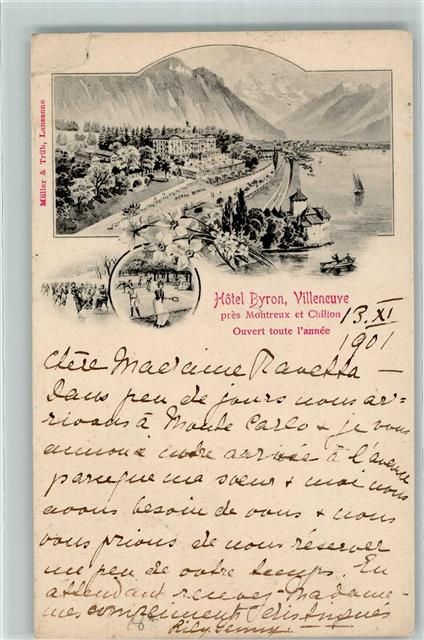 Müller & Trüb, Lausanne
Hôtel Byron, Villeneuve
près Montreux et Chillon
Ouvert toute l'année
13 XI
1901
Chère Madame Ravetta —
Dans peu de jours nous ar=
rivons à Monte Carlo & je vous
annonce notre arrivée à l'avance
parceque ma soeur & moi nous
avons besoin de vous & nous
vous prions de nous réserver
un peu de votre temps. En
attendant recevez Madame
mes compliments distingués